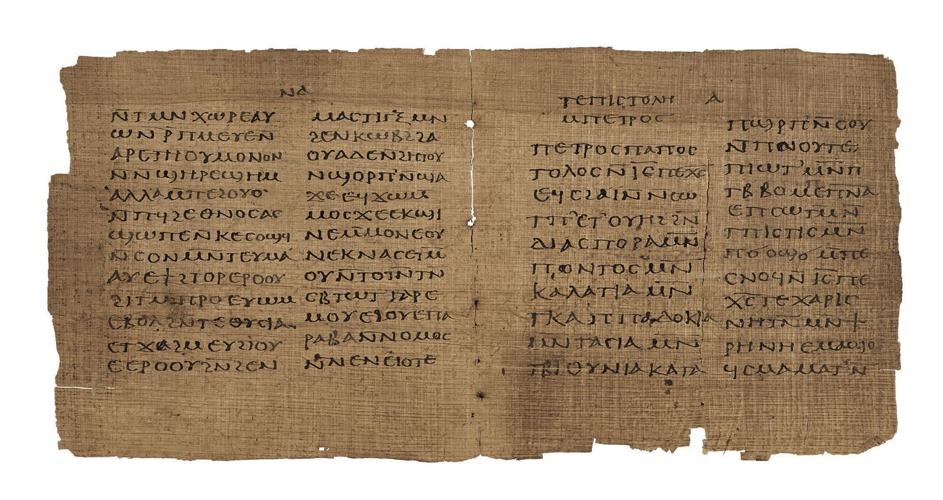 ⲛⲇ
ⲛ̄ⲧⲙⲛⲭⲱⲣⲉⲁⲩ
ⲱⲛ ⲣ̄ⲡⲙⲉⲩⲉⲛ
ⲁⲣⲉⲧⲏⲟⲩⲙⲟⲛⲟⲛ
ⲛⲛϣⲏⲣⲉϣⲏⲙ
ⲁⲗⲗⲁⲙⲡⲉϩⲟⲩⲟ
ⲛ̄ⲡϥϩⲉⲑⲛⲟⲥⲁⲥ
ϣⲱⲡⲉⲛⲕⲉⲥⲟⲡ
ⲛ̄ⲥⲟⲛⲙⲛ̄ⲧⲉⲩⲙⲁ
ⲁⲩⲉϯϩⲧⲟⲣⲉⲣⲟⲟⲩ
ϩⲓⲧⲙ̄ⲡⲣⲣⲟⲉⲩⲱⲙ
ⲉⲃⲟⲗϩⲛⲧⲉⲑⲩⲥⲓⲁ
ⲉⲧϫⲁϩⲙⲉⲩϩⲓⲟⲩ
ⲉⲉⲣⲟⲟⲩϩⲛ̄ϩⲉⲛ
ⲙⲁⲥⲧⲓⲅⲝ ⲙⲛ
ϩⲉⲛⲕⲱⲃϩϩⲁ
ⲟⲩⲁⲇⲉⲛ̄ϩⲏⲧⲟⲩ
ⲛϣⲟⲣⲡ̄ⲛϣⲁ
ϫⲉⲉϥϫⲱⲙ
ⲙⲟⲥϫⲉⲉⲕϣⲓ
ⲛⲉⲙ̄ⲙⲟⲛⲉⲟⲩ
ⲛⲉⲕⲛⲁⲥⲉⲧⲙ̄
ⲟⲩⲛ̄ⲧⲟⲓⲛⲧⲛ
ⲥⲃⲧⲱⲧ ⲅⲁⲣⲉ
ⲙⲟⲩⲉϩⲟⲩⲉⲡⲁ
ⲣⲁⲃⲁⲛⲛⲟⲙⲟⲥ
ⲛ̄ⲛⲉⲛⲉⲓⲟⲧⲉ
ⲧⲉⲡⲓⲥⲧⲟⲗⲏ ⲁ
ⲙⲡⲉⲧⲣⲟⲥ
ⲡⲉⲧⲣⲟⲥⲡⲁⲡⲟⲥ
ⲧⲟⲗⲟⲥⲛ̄ⲓ̄ⲥ̄ⲡⲉⲭⲣ̄ⲥ̄
ⲉϥⲥϩⲁⲓⲛ̄ⲛⲥⲱ
ⲧⲡ̄ⲉⲧⲟⲩⲏϩϩⲛ̄
ⲇⲓⲁⲥⲡⲟⲣⲁⲙⲛ̄
ⲡⲟⲛⲧⲟⲥⲙⲛ̄
ⲕⲁⲗⲁⲧⲓⲁ ⲙⲛ
ⲧⲕⲁⲡⲡⲁⲇⲟⲕⲓⲁ
ⲙⲛⲧⲁⲥⲓⲁ ⲙⲛ
ⲧⲃⲓⲑⲩⲛⲓⲁ ⲕⲁⲧⲁ
ⲡϣⲣ̄ⲡⲛ̄ⲥⲟⲩ
ⲛ̄ⲡⲛⲟⲩⲧⲉ
ⲡⲓⲱⲧ ⲙ̄ⲛ̄ⲡ
ⲧⲃⲃⲟⲙⲉⲡⲛⲁ
ⲉⲡⲥⲱⲧⲙ̄ⲛ
ⲧⲡⲓⲥⲧⲓⲥⲙⲛ
ⲥⲛⲟϥⲛ̄ⲓ̄ⲥ̄ⲡⲉ
ⲭⲥⲧⲉⲭⲁⲣⲓⲥ
ⲛⲏⲧⲛ̄ⲙⲛϯ
ⲣⲏⲛⲏⲉⲙⲁϣⲟ
ϥⲥⲙⲁⲙⲁⲧⲛ̄